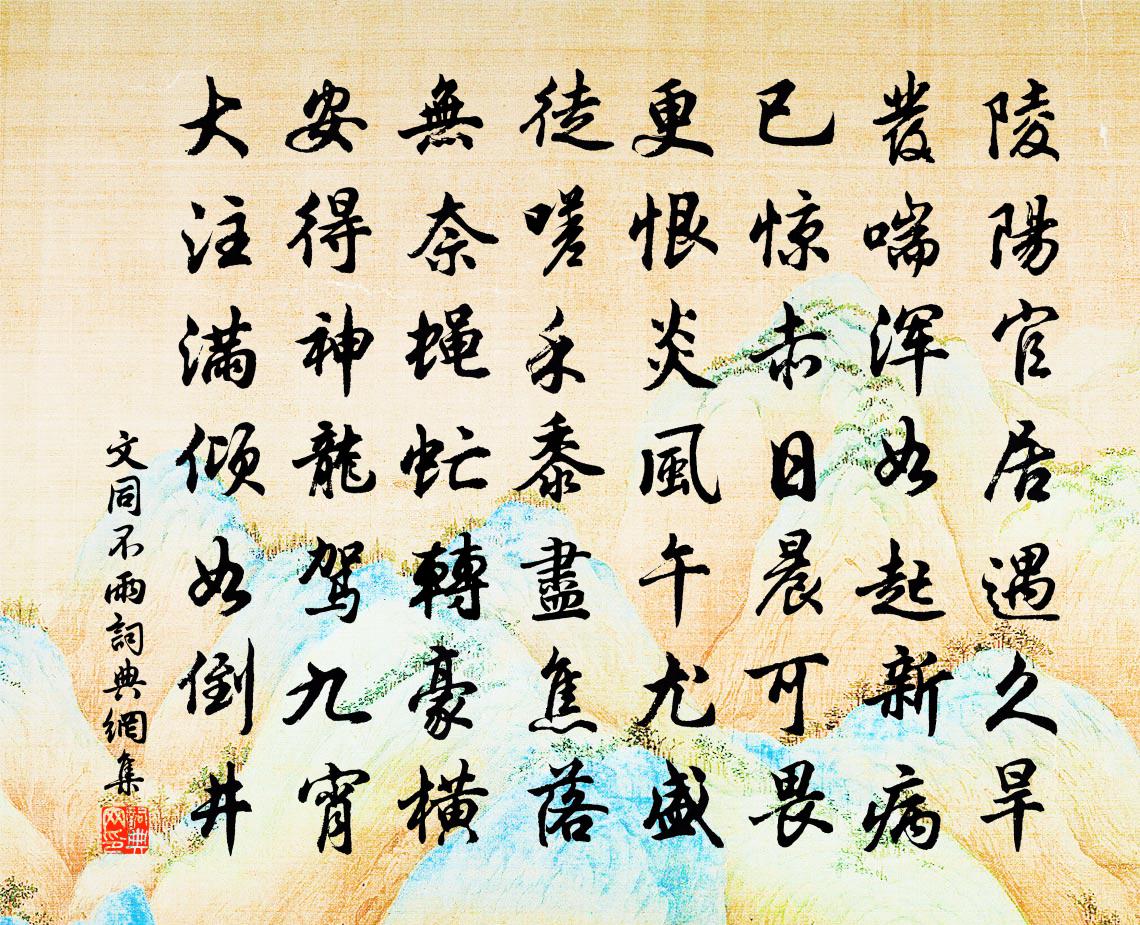 陵陽官居遇久旱
發喘浑如起新病
已惊赤日晨可畏
更恨炎風午尤盛
徒嗟禾黍盡焦落
無奈蝇虻轉豪横
安得神龍駕九宵
大注满倾如倒井
文同不雨詞典網集
詞典網印